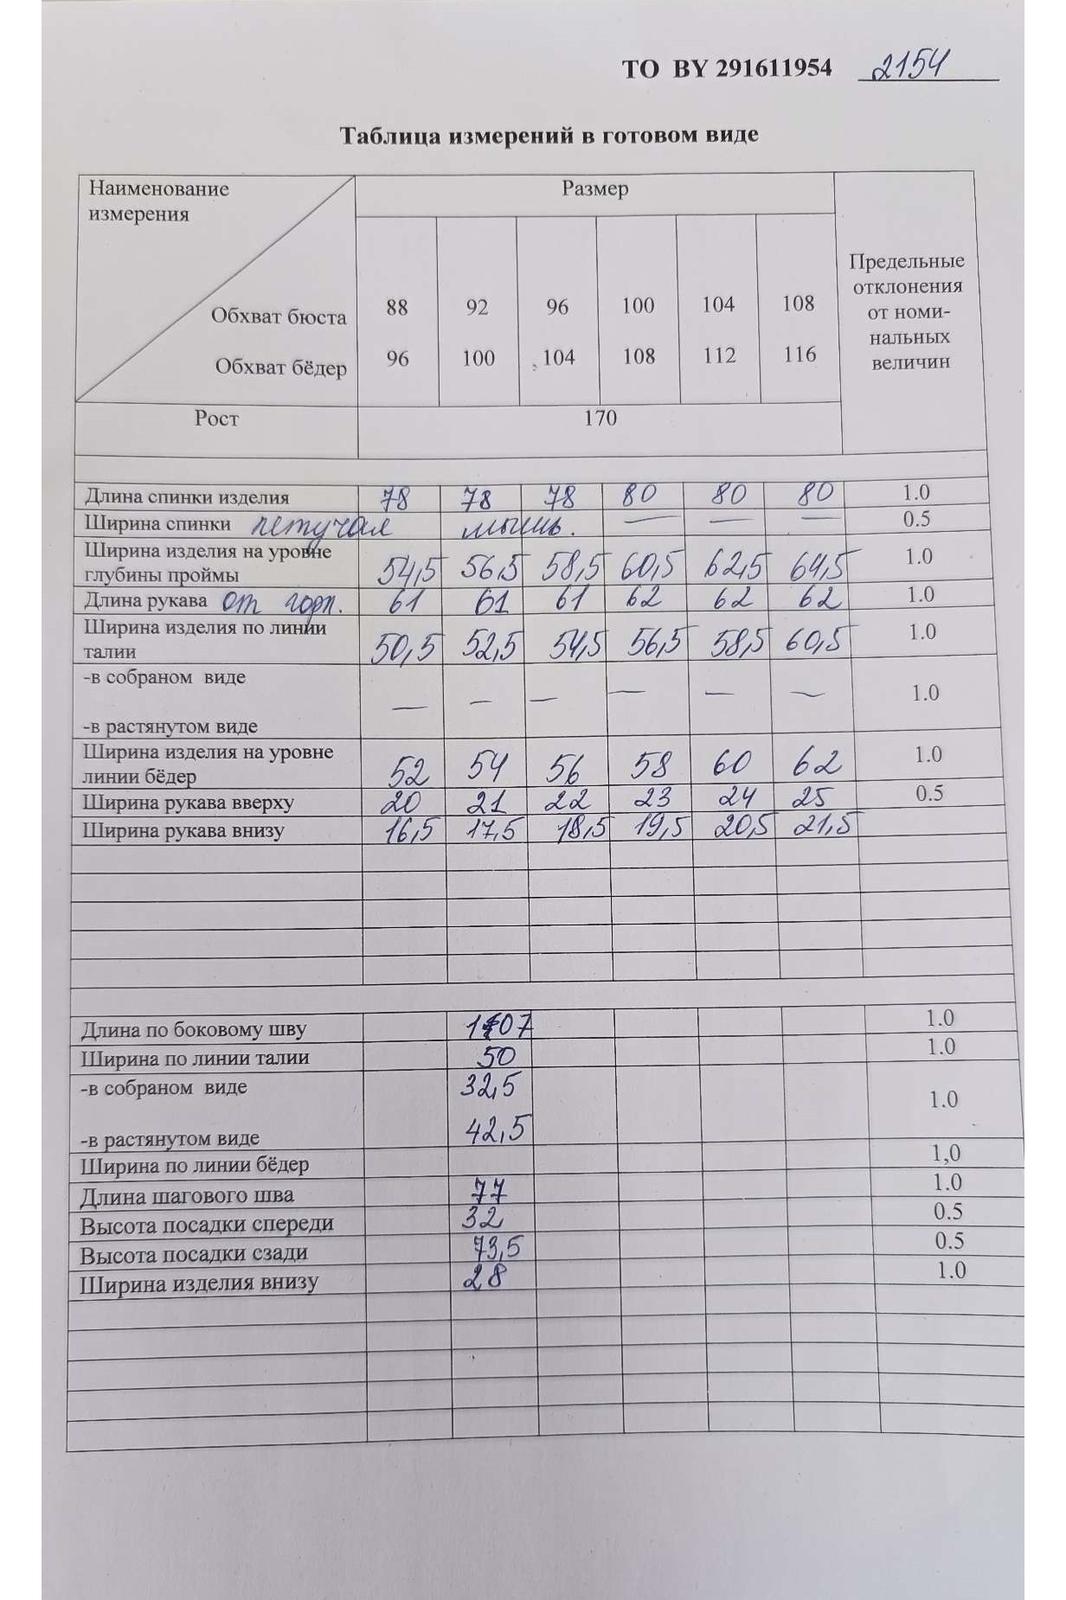 ТО BY 291611954 2154
Таблица измерений в готовом виде
Наименование измерения
Размер
Предельные отклонения от номи- нальных величин
Обхват бюста 88 92 96 100 104 108
Обхват бёдер 96 100 104 108 112 116
Рост 170
Длина спинки изделия 78 78 78 80 80 80 1.0
Ширина спинки летучая мышь. — — — 0.5
Ширина изделия на уровне
глубины проймы 54,5 56,5 58,5 60,5 62,5 64,5 1.0
Длина рукава от горл. 61 61 61 62 62 62 1.0
Ширина изделия по линии
талии 50,5 52,5 54,5 56,5 58,5 60,5 1.0
-в собраном виде
— — — — — — 1.0
-в растянутом виде
Ширина изделия на уровне
линии бёдер 52 54 56 58 60 62 1.0
Ширина рукава вверху 20 21 22 23 24 25 0.5
Ширина рукава внизу 16,5 17,5 18,5 19,5 20,5 21,5
Длина по боковому шву 107 1.0
Ширина по линии талии 50 1.0
-в собраном виде 32,5
1.0
-в растянутом виде 42,5
Ширина по линии бёдер 1,0
Длина шагового шва 77 1.0
Высота посадки спереди 32 0.5
Высота посадки сзади 73,5 0.5
Ширина изделия внизу 28 1.0